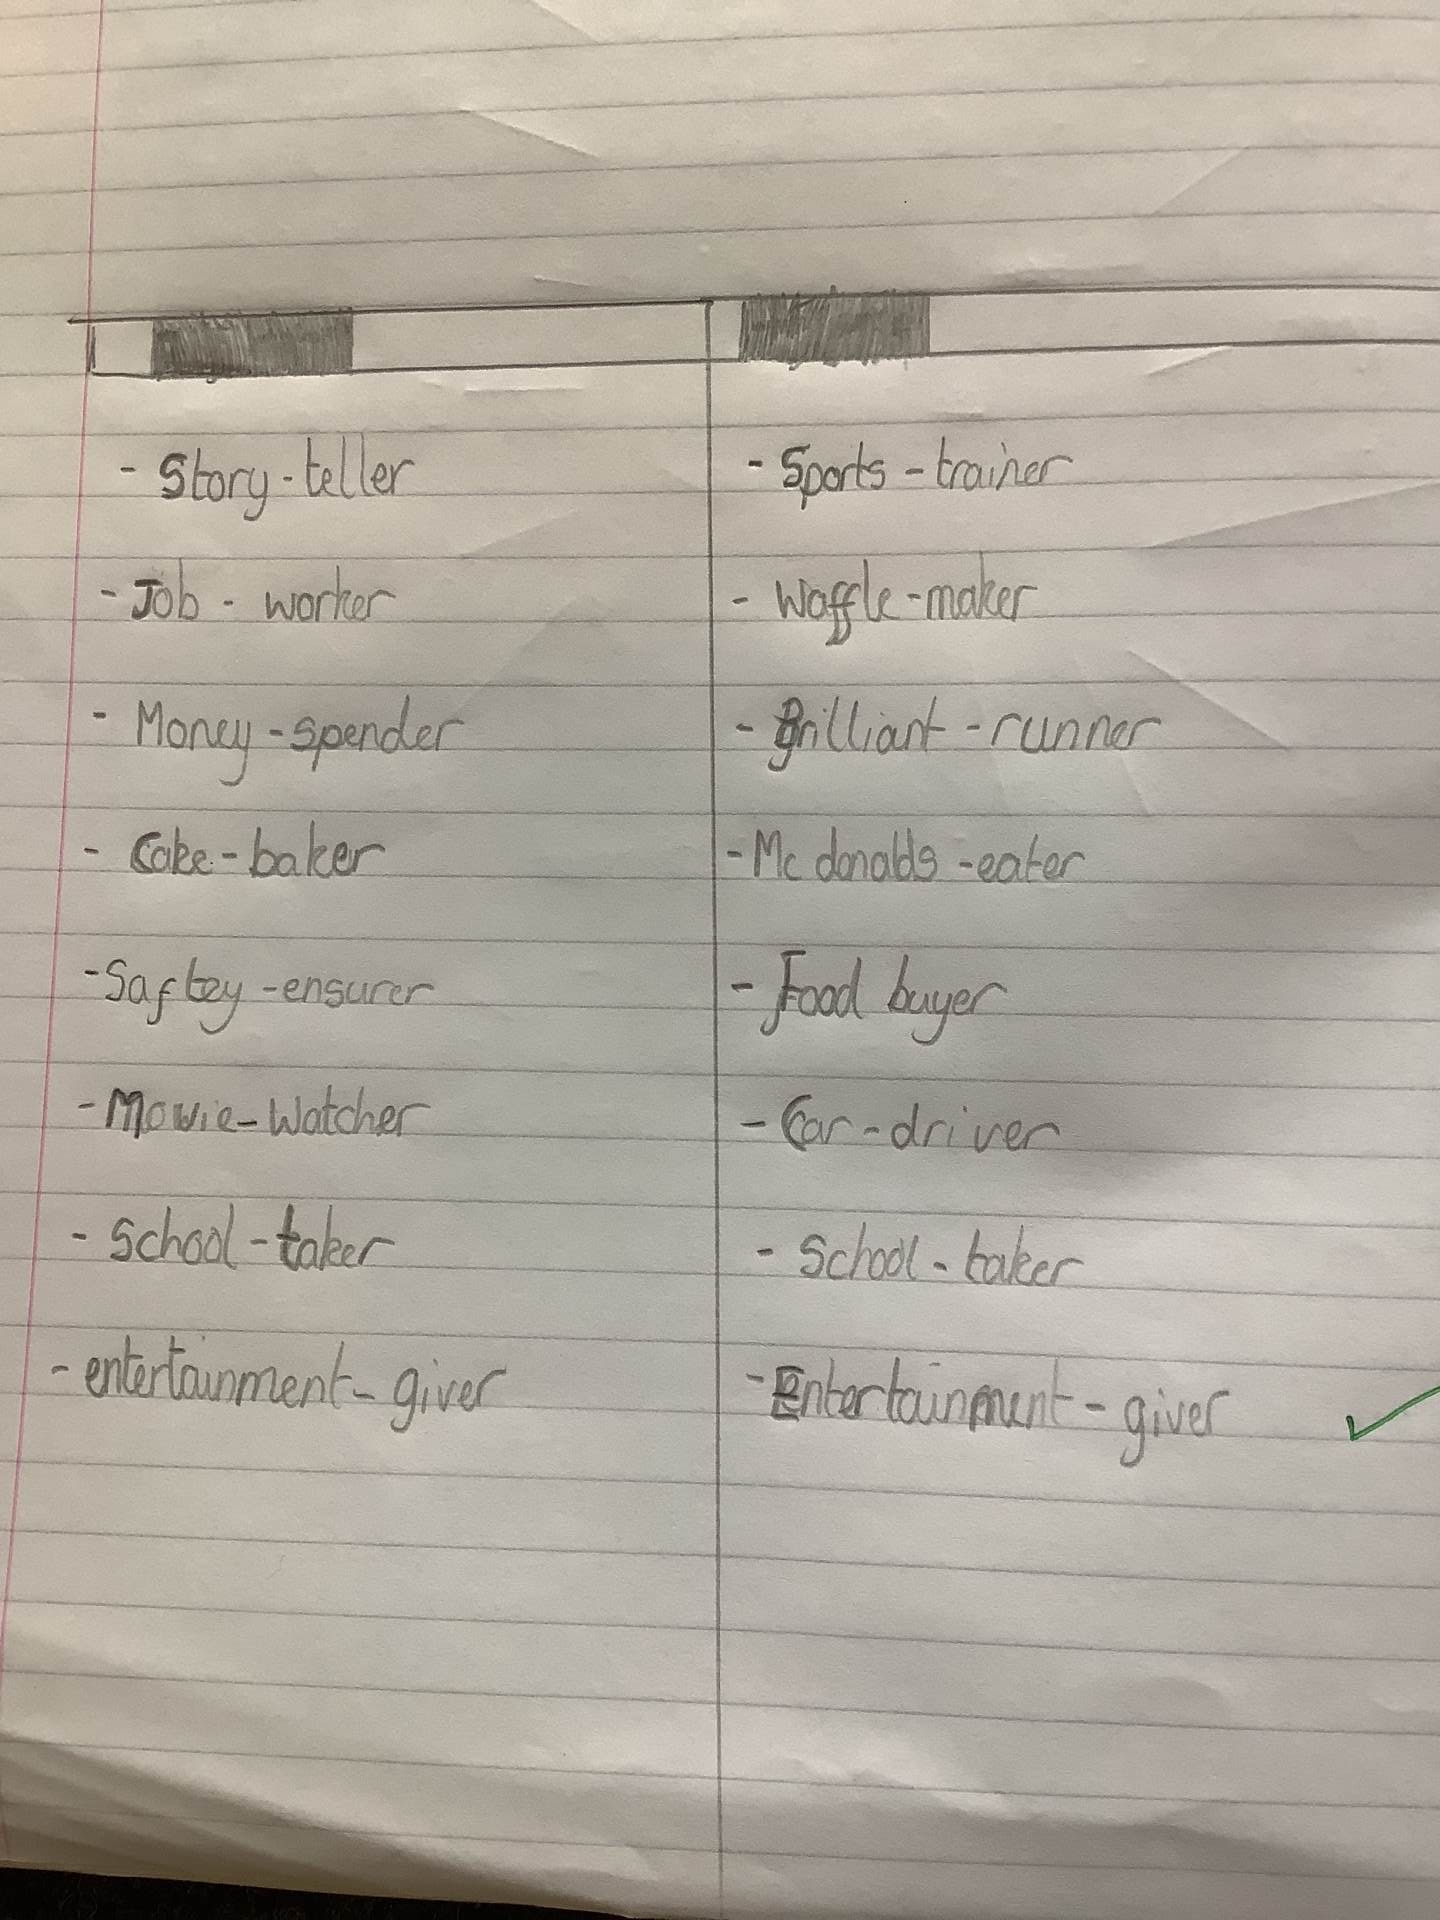 - Story-teller
- Job - worker
- Money-spender
- Cake-baker
- Saftey-ensurer
- Movie-Watcher
- School-taker
- entertainment-giver
- Sports-trainer
- Waffle-maker
- Brilliant-runner
- Mc donalds-eater
- Food buyer
- Car-driver
- School-taker
- Entertainment-giver